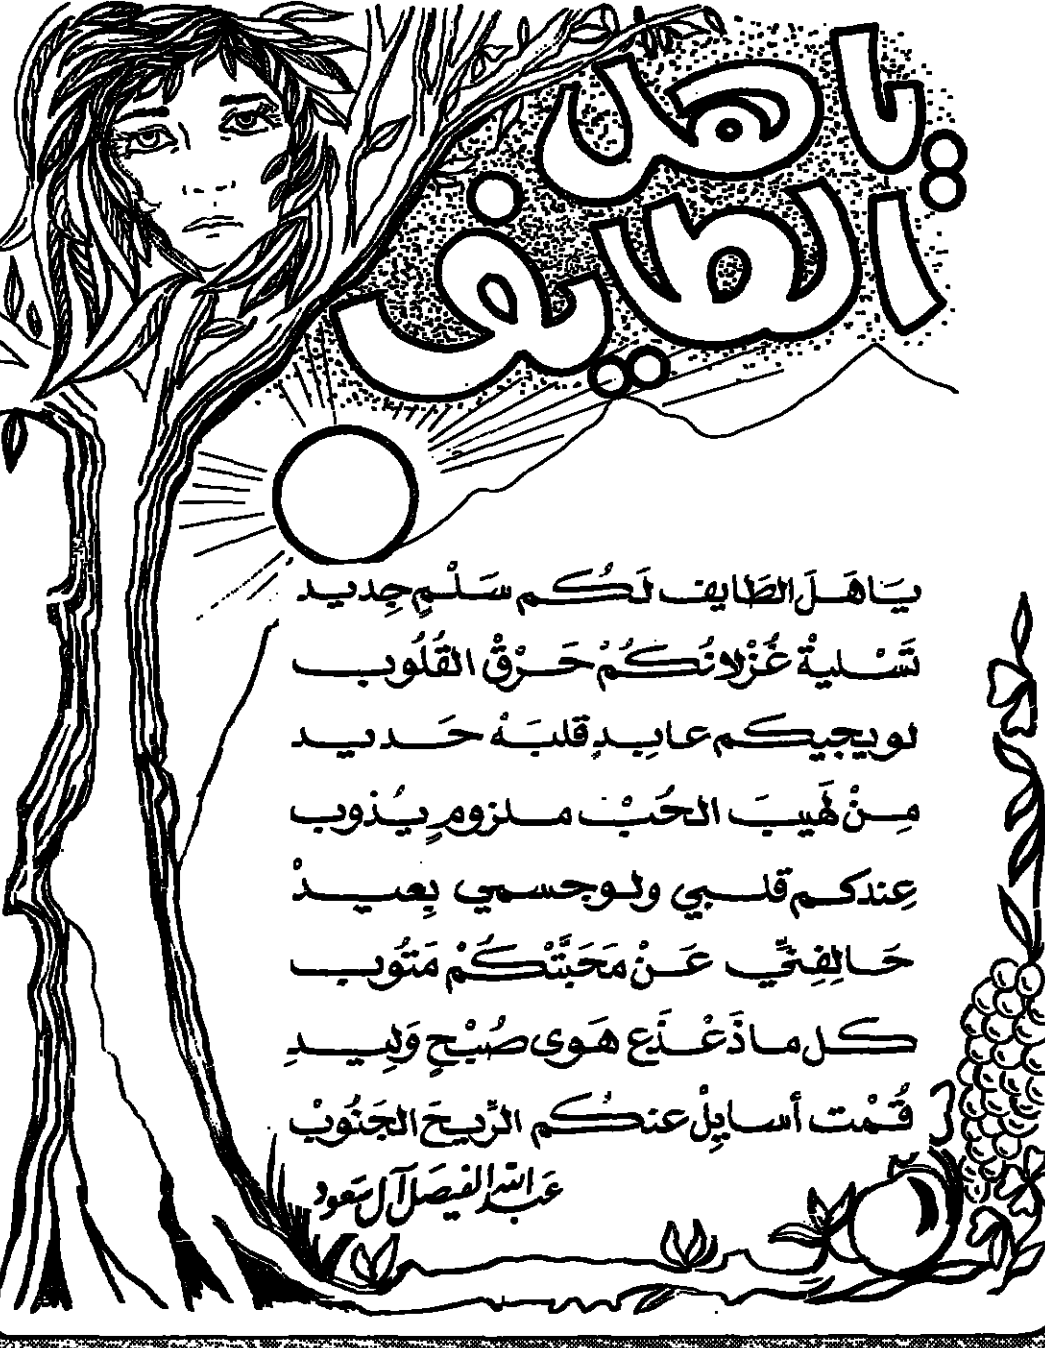 ياهل
الطايف
يَاهَلَ الطَايف لَكُم سَلْمٍ جِديد
تَسْلية غُزْلانُكُمْ حَرْقْ القُلُوب
لو يجيكم عابِدٍ قلبَهْ حديد
مِنْ لَهيبَ الحُبْ ملزومٍ يذوب
عِندكم قلبي ولو جسمي بِعيدْ
حَالِفِنِّي عَنْ مَحَبَّتْكُمْ مَتُوب
كل ماذَعْذَع هَوى صُبْحٍ وَلِيدِ
قُمْت أسايِلْ عنكُم الرِّيحَ الجَنُوبْ
عَبد الله الفيصَل آل سَعود